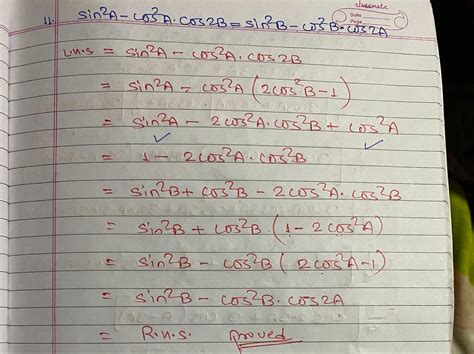 classmate
Date
Page
11. sin²A - cos²A · cos2B = sin²B - cos²B · cos2A
L.H.S = sin²A - cos²A · cos2B
= sin²A - cos²A (2cos²B - 1)
= sin²A - 2cos²A · cos²B + cos²A
= 1 - 2cos²A · cos²B
= sin²B + cos²B - 2cos²A · cos²B
= sin²B + cos²B · (1 - 2cos²A)
= sin²B - cos²B (2cos²A - 1)
= sin²B - cos²B · cos2A
= R.H.S. proved